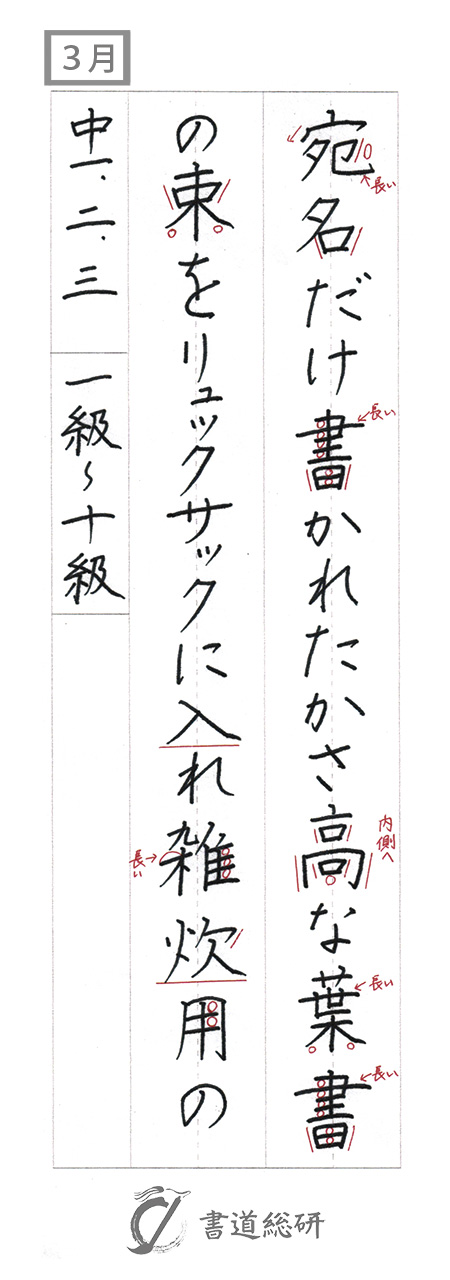 3月
宛名だけ書かれたかさ高な葉書
の束をリュックサックに入れ雑炊用の
中一、二、三 一級~十級
長い
長い
内側へ
長い
長い
長い
書道総研